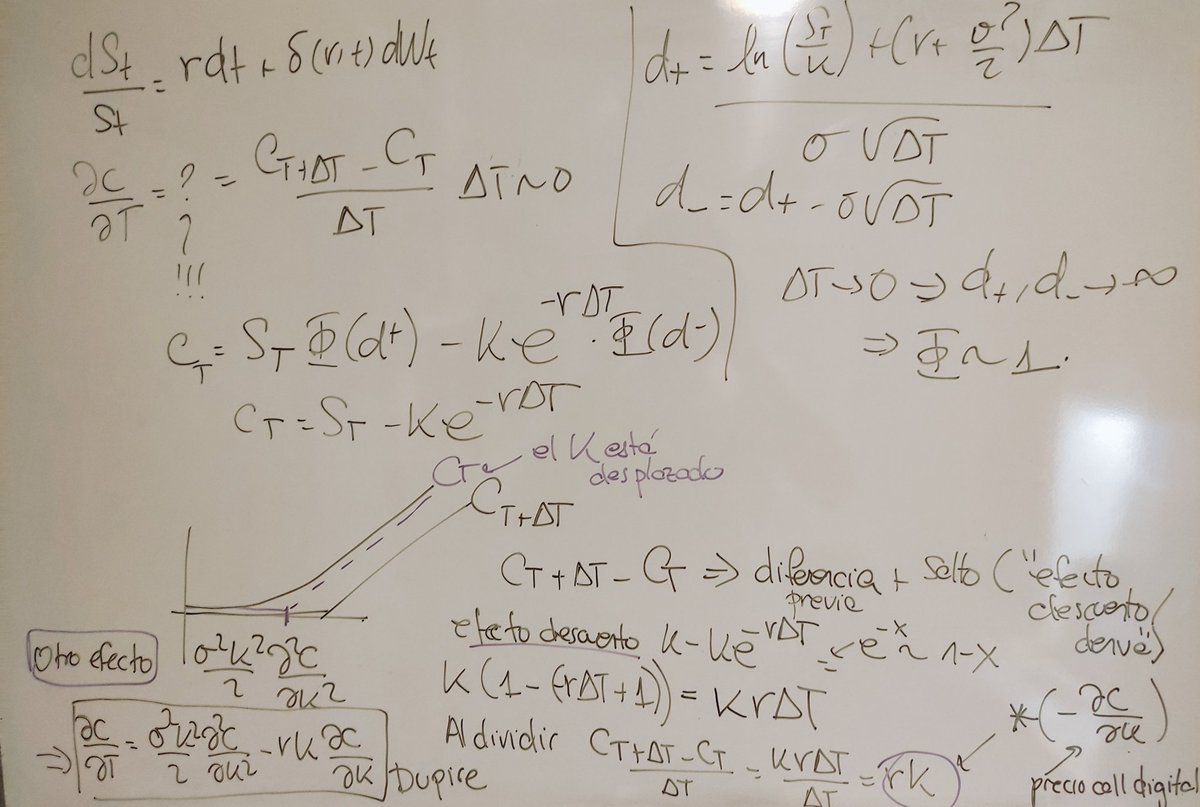 dSt/St = rdt + δ(r,t) dWt
∂C/∂T = ? = (C_{T+ΔT} - C_T)/ΔT ΔT ~ 0
?
!!!
C_T = S_T Φ(d+) - K e^{-rΔT} · Φ(d-)
C_T = S_T - K e^{-rΔT}
d+ = (ln(S_T/K) + (r + σ²/2) ΔT)/(σ √ΔT)
d- = d+ - σ√ΔT
ΔT → 0 ⇒ d+, d- → ∞
⇒ Φ ~ 1.
C_T ← el K está
desplazado
C_{T+ΔT}
C_{T+ΔT} - C_T ⇒ diferencia + salto ("efecto
previa descuento/
deriva")
efecto descuento K - Ke^{-rΔT} = ← e^{-x} ~ 1-x
K(1 - (-rΔT+1)) = KrΔT
Al dividir (C_{T+ΔT} - C_T)/ΔT = KrΔT/ΔT = rK
* (- ∂C/∂K)
precio call digital
Otro efecto
σ²K²/2 ∂²C/∂K²
⇒ ∂C/∂T = σ²K²/2 ∂²C/∂K² - rK ∂C/∂K Dupire